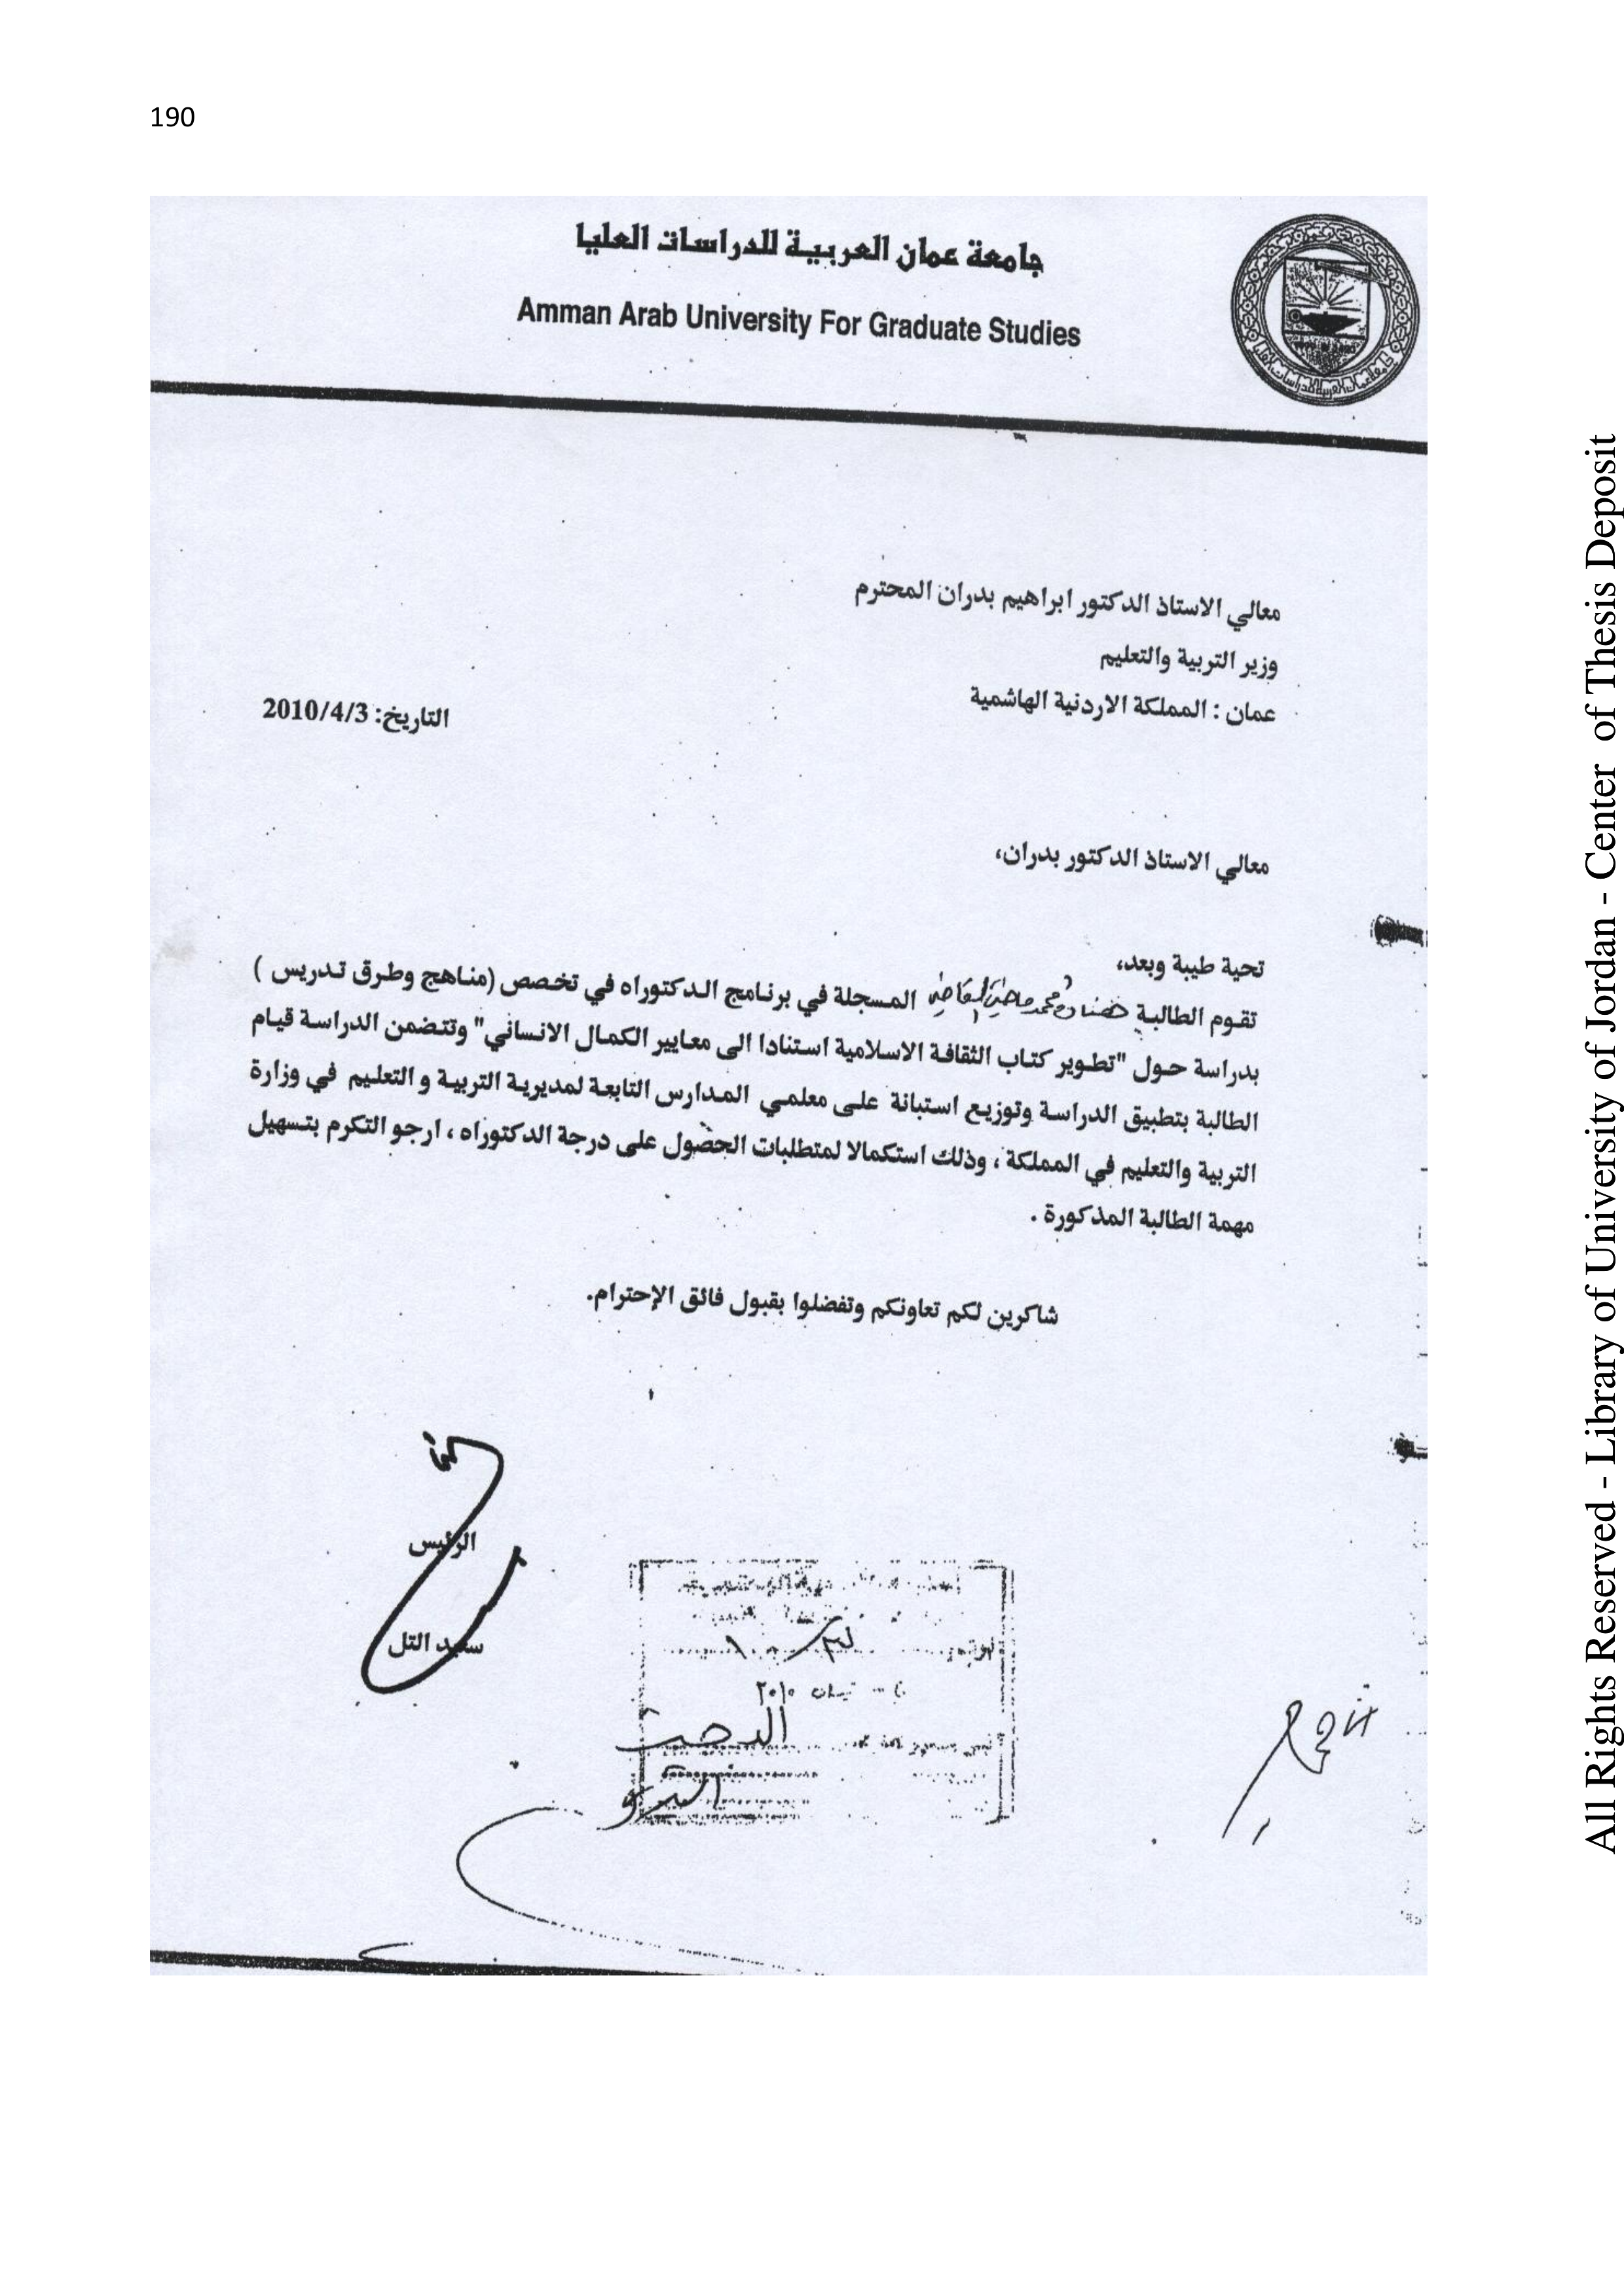 190
جامعة عمان العربية للدراسات العليا
Amman Arab University For Graduate Studies
معالي الاستاذ الدكتور ابراهيم بدران المحترم
وزير التربية والتعليم
عمان : المملكة الاردنية الهاشمية
التاريخ: 2010/4/3
معالي الاستاذ الدكتور بدران،
تحية طيبة وبعد،
تقوم الطالبة محمد القاضي المسجلة في برنامج الدكتوراه في تخصص (مناهج وطرق تدريس )
بدراسة حول "تطوير كتاب الثقافة الاسلامية استنادا الى معايير الكمال الانساني" وتتضمن الدراسة قيام
الطالبة بتطبيق الدراسة وتوزيع استبانة على معلمي المدارس التابعة لمديرية التربية و التعليم في وزارة
التربية والتعليم في المملكة ، وذلك استكمالا لمتطلبات الحصول على درجة الدكتوراه ، ارجو التكرم بتسهيل
مهمة الطالبة المذكورة .
شاكرين لكم تعاونكم وتفضلوا بقبول فائق الإحترام.
الرئيس
سعيد التل
نيسان ٢٠١٠
All Rights Reserved - Library of University of Jordan - Center of Thesis Deposit